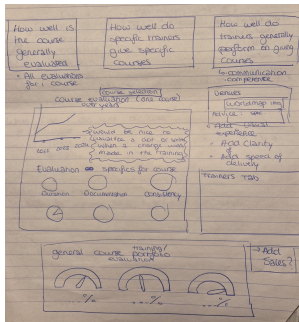 How well is
the course
generally
evaluated
• All evaluations
for 1 course
How well do
specific trainers
give specific
courses
How well do
trainers generally
perform on giving
courses
↳ communication
competence
course selection
course evaluation (one course)
over years
would be nice to
visualize a dot or so
when a change was
made in the training
Evaluation
specifics for course
Duration
Documentation
Consistency
Venues
worldmap
• Add
experience
• Add clarity
of
• Add speed of
delivery
Trainers Tab
general course
training/
portfolio
evaluation
...%
...%
...%
→ Add
Sales?